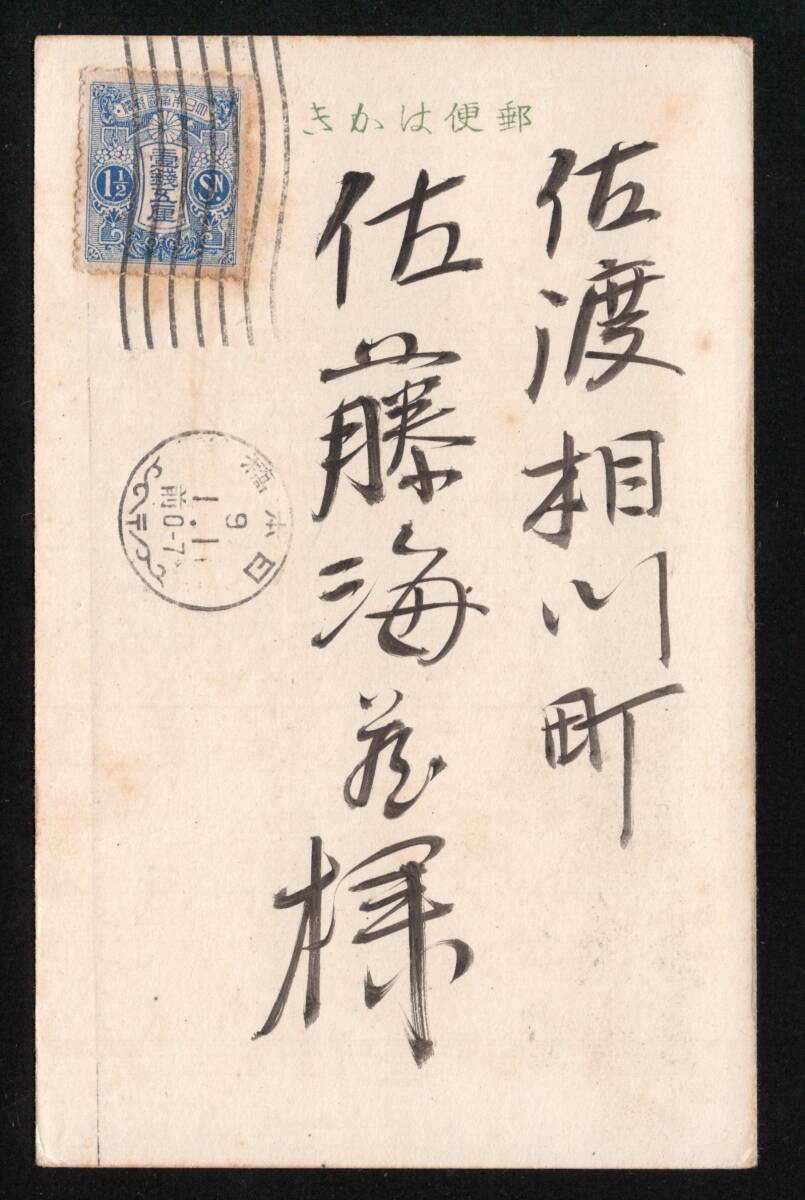 郵便はかき
佐渡相川町
佐藤海蔵様
大日本帝國郵便
壹錢五厘
1½
SN.
日本橋
9
1.1
前0-7